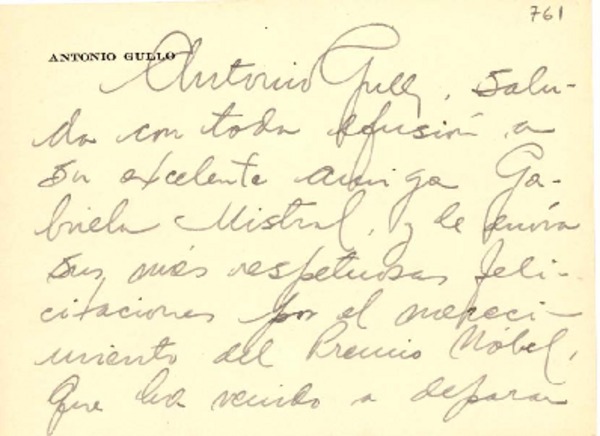 761
ANTONIO GULLO
Antonio Gullo, salu-
da con toda efusión a
su excelente amiga Ga-
briela Mistral, y le envía
sus más respetuosas feli-
citaciones por el mereci-
miento del Premio Nóbel,
que ha venido a deparar